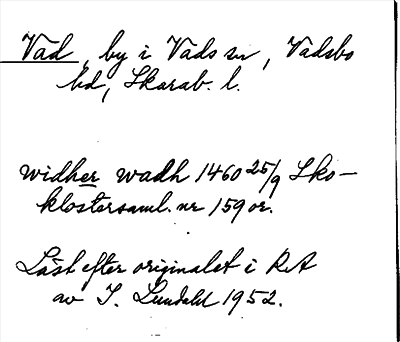 Vad, by i Vads sn, Vadsbo
hd, Skarab. l.
widher wadh 1460 25/9 Sko-
klostersaml. nr 159 or.
Läst efter originalet i RA
av I. Lundahl 1952.